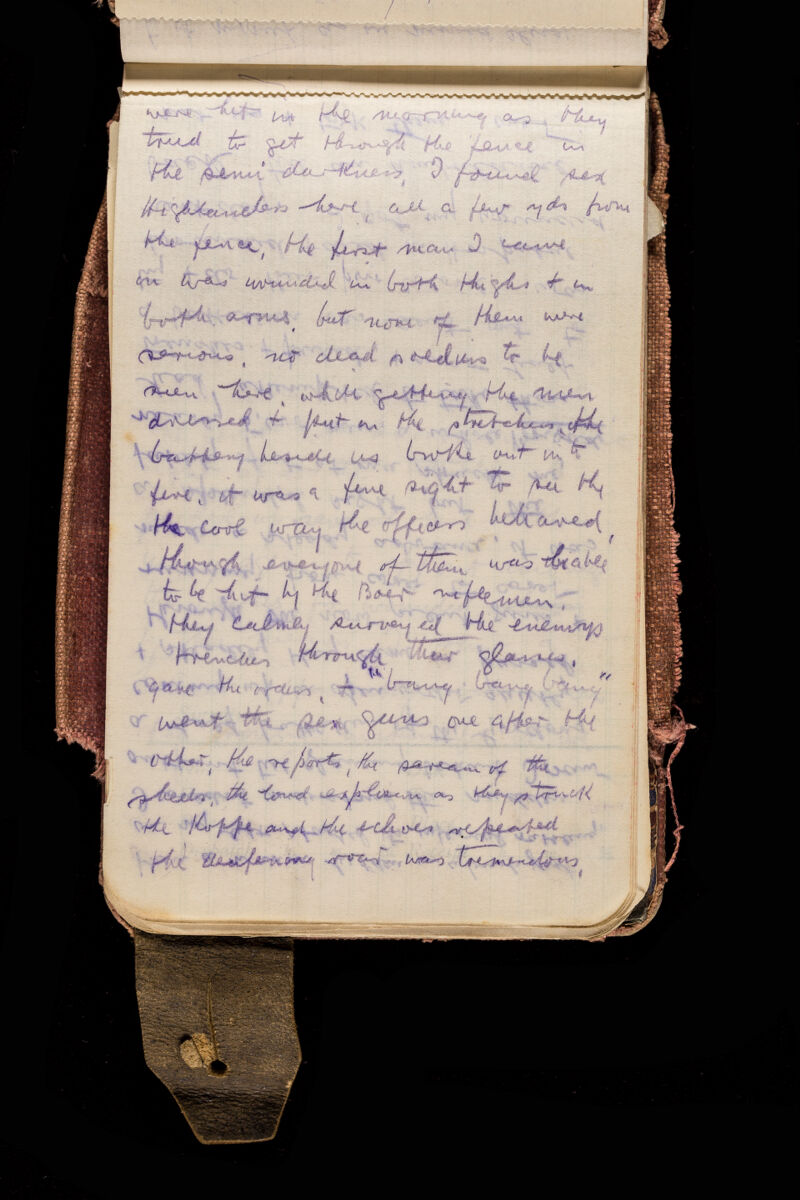 were hit in the morning as they
tried to get through the fence in
the semi darkness, I found six
Highlanders here, all a few yds from
the fence, the first man I came
on was wounded in both thighs & in
both arms, but none of them were
serious, no dead soldiers to be
seen here, while getting the men
dressed & put on the stretchers, the
battery beside us broke out into
fire, it was a fine sight to see the
the cool way the officers behaved,
though everyone of them was liable
to be hit by the Boer riflemen,
they calmly surveyed the enemys
trenches through their glasses,
gave the orders, & "bang bang bang"
went the six guns one after the
other, the reports, the scream of the
shells, the loud explosion as they struck
the Koppe and the echoes repeated
the deafening roar was tremendous,